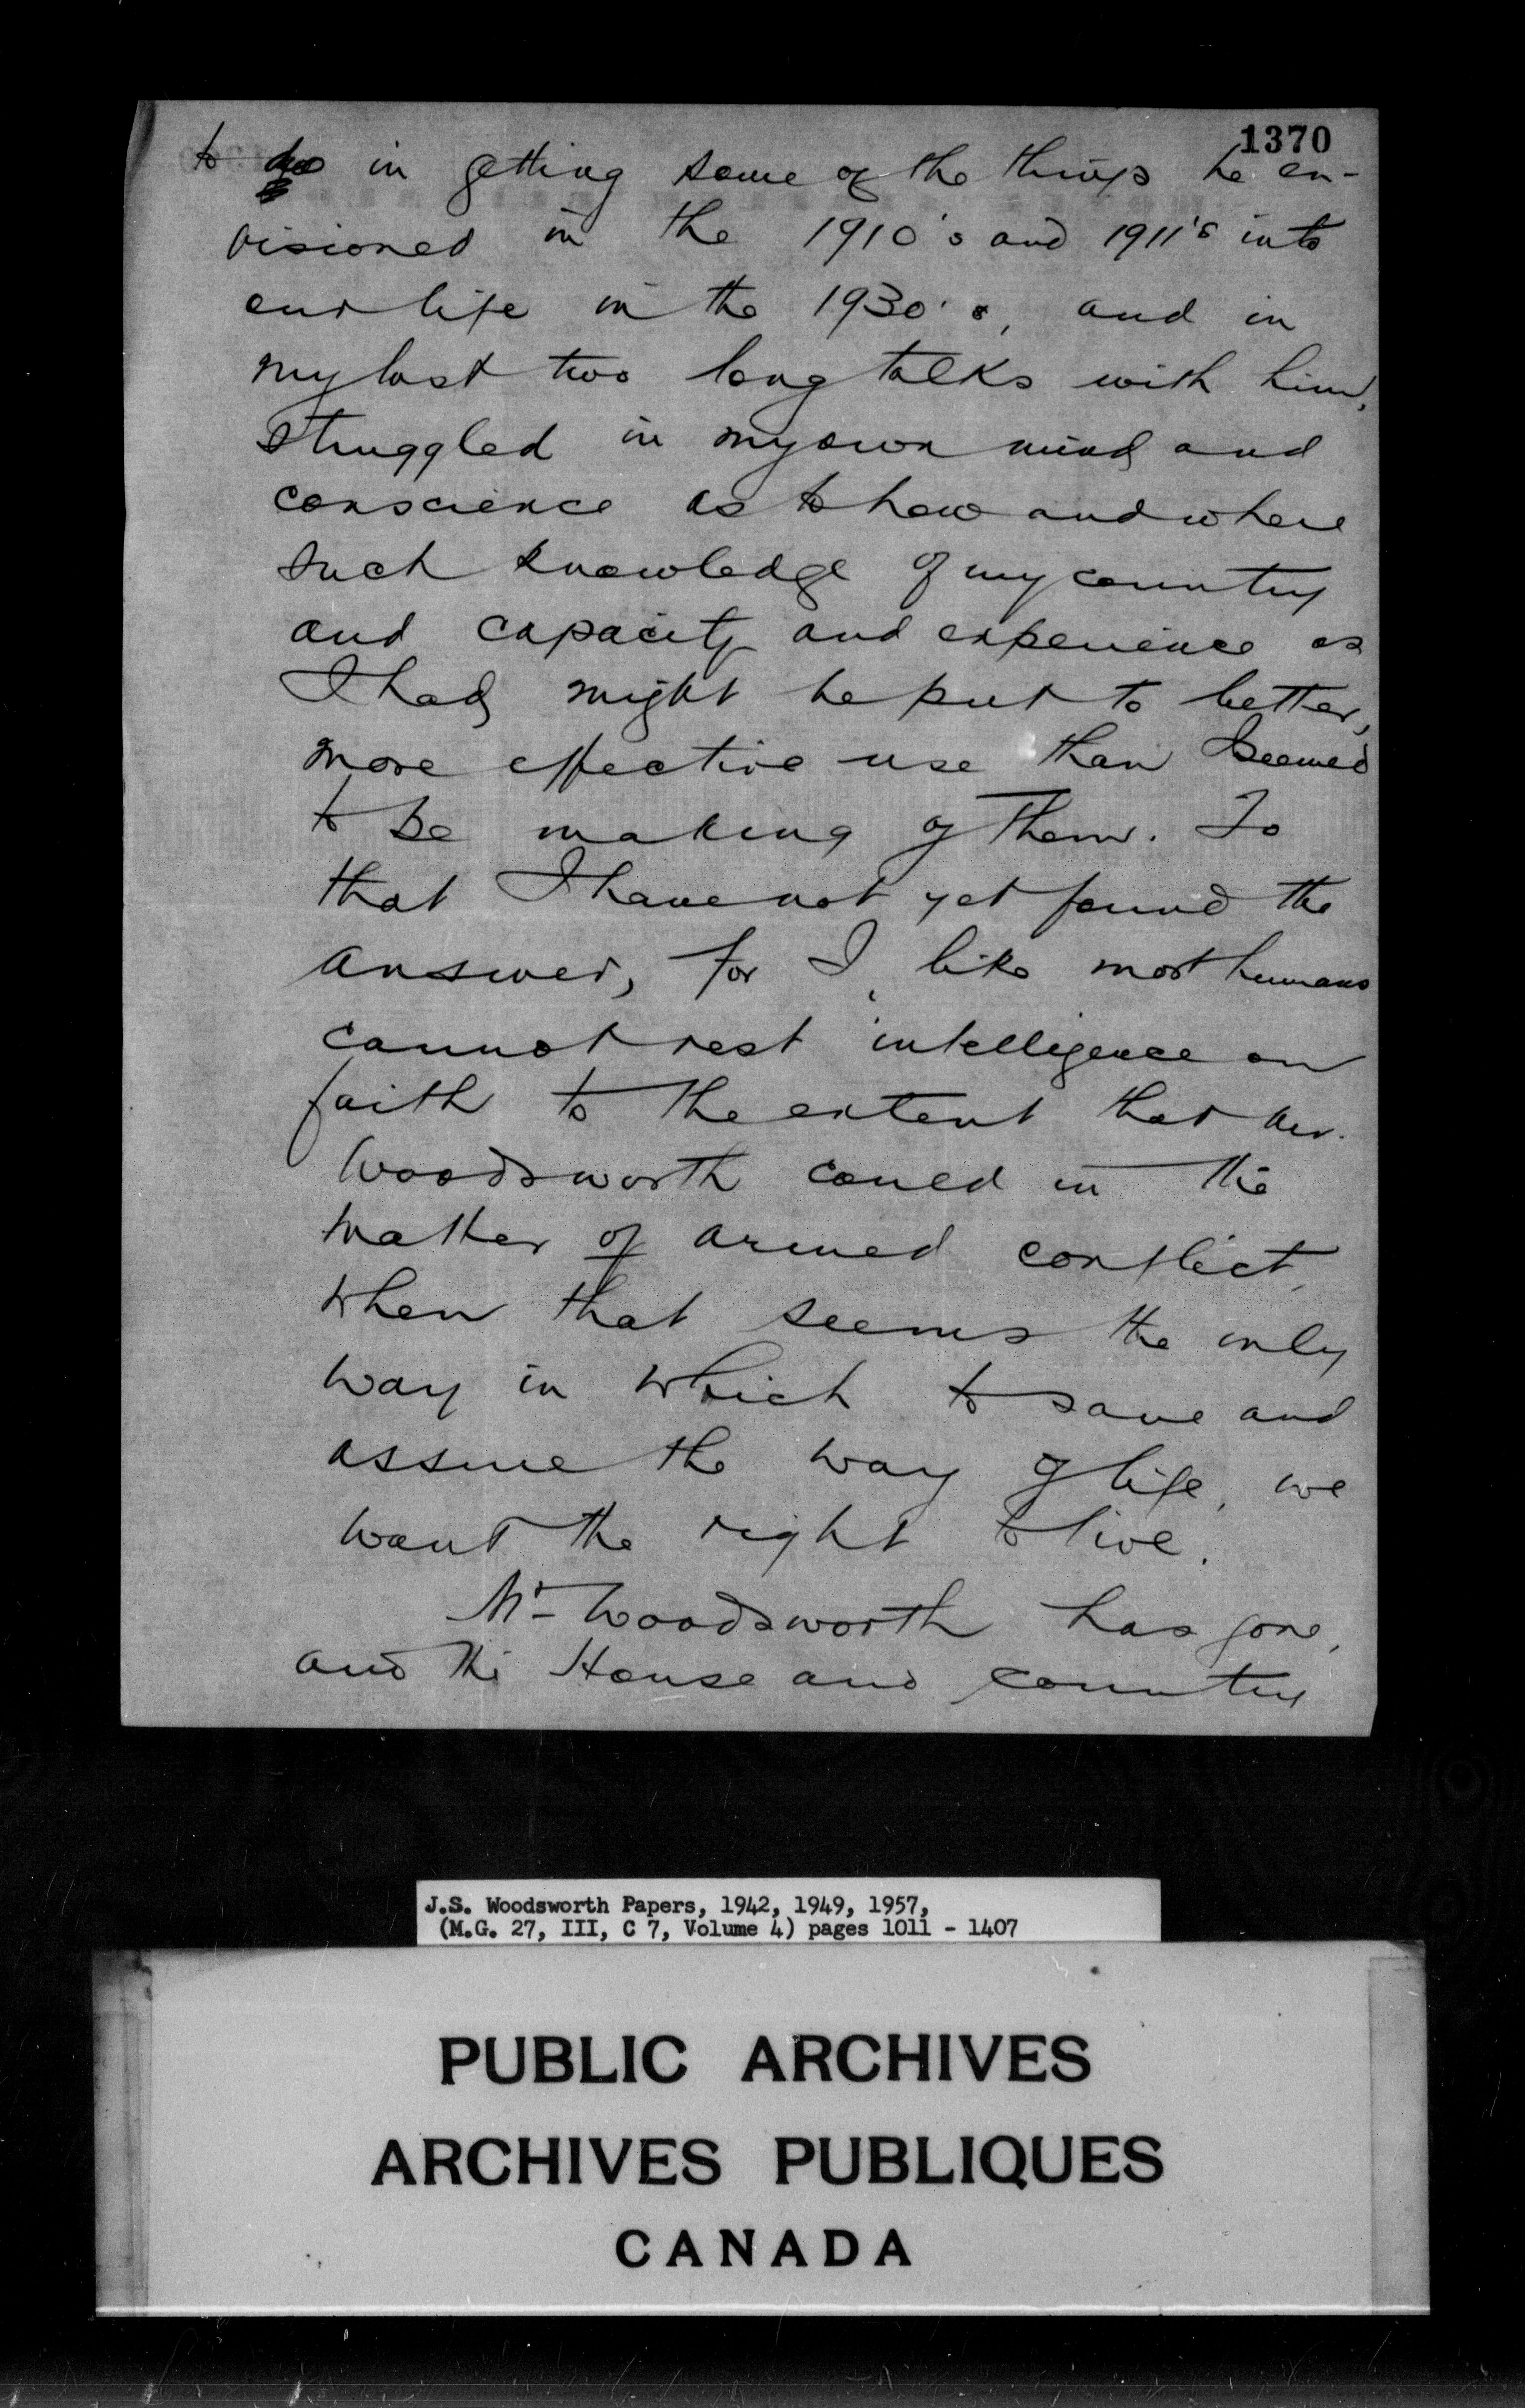 1370
to do in getting some of the things he en-
visioned in the 1910's and 1911's into
our life in the 1930's, and in
my last two long talks with him,
struggled in my own mind and
conscience as to how and where
such knowledge of my country
and capacity and experience as
I had, might be put to better,
more effective use than I seemed
to be making of them. To
that I have not yet found the
answer, for I, like most humans
cannot rest intelligence on
faith to the extent that Mr.
Woodsworth could in the
matter of armed conflict,
when that seems the only
way in which to save and
assure the way of life, we
want the right to live.
Mr Woodsworth has gone,
and the House and country
J.S. Woodsworth Papers, 1942, 1949, 1957,
(M.G. 27, III, C 7, Volume 4) pages 1011 - 1407
PUBLIC ARCHIVES
ARCHIVES PUBLIQUES
CANADA